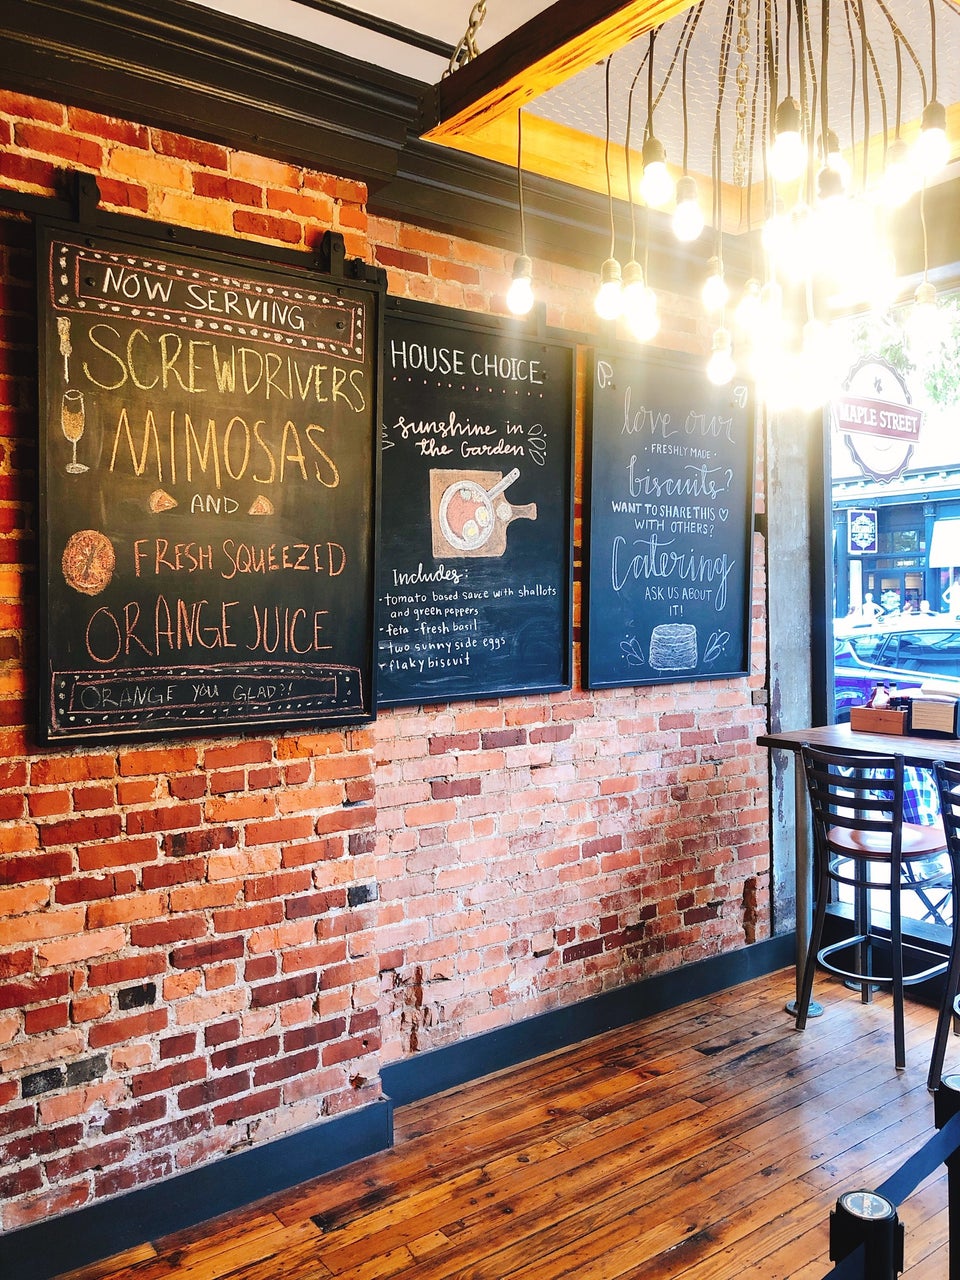 NOW SERVING
SCREWDRIVERS
MIMOSAS
AND
FRESH SQUEEZED
ORANGE JUICE
ORANGE YOU GLAD?!
HOUSE CHOICE
sunshine in
the Garden
Includes:
- tomato based sauce with shallots
and green peppers
- feta - fresh basil
- two sunny side eggs
- flaky biscuit
love our
• FRESHLY MADE •
biscuits?
WANT TO SHARE THIS ♡
WITH OTHERS?
Catering
ASK US ABOUT
IT!
MAPLE STREET